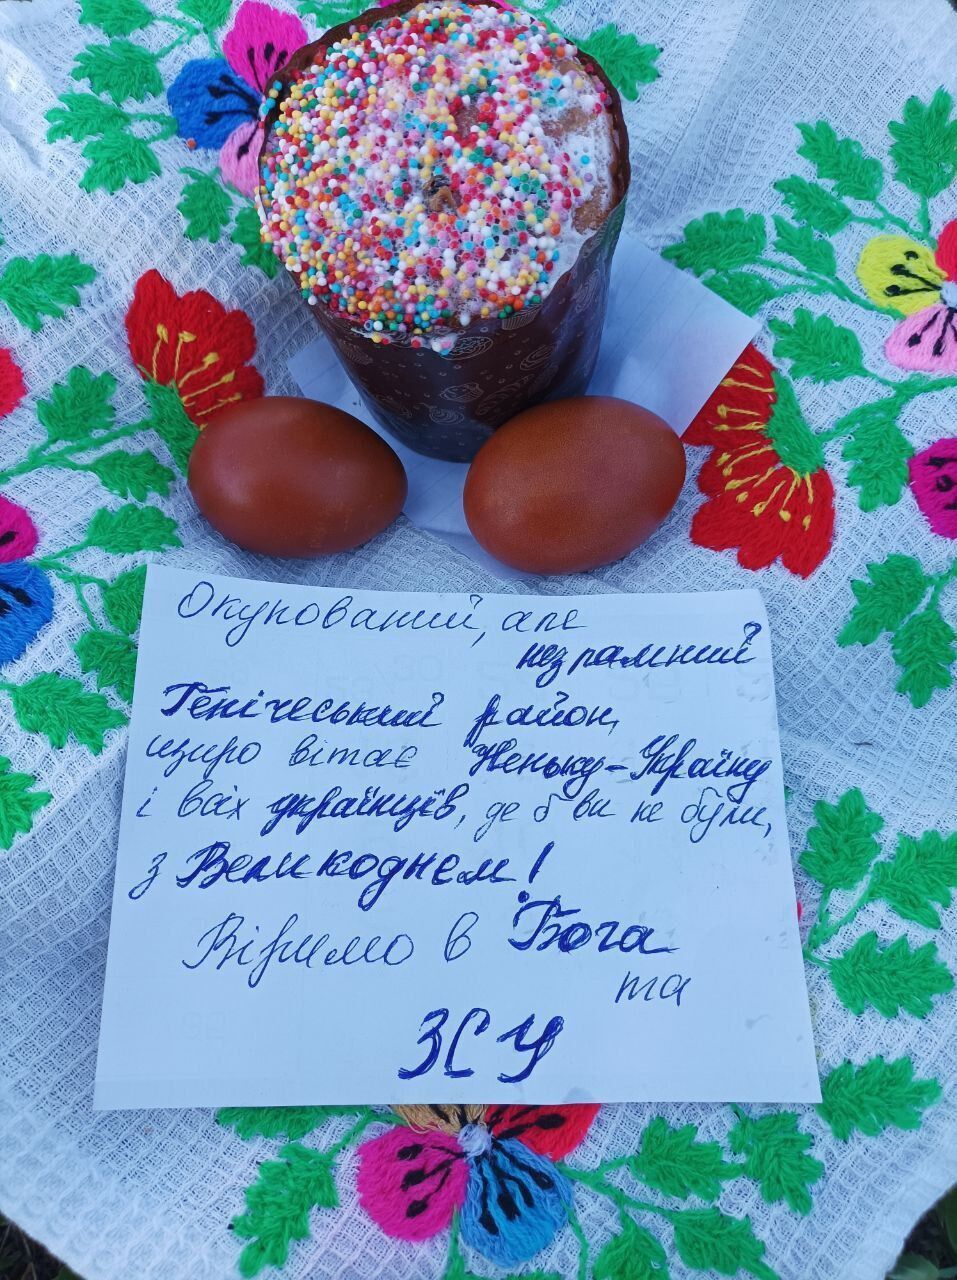 Окупований, але
незламний
Генічеський район,
щиро вітає Неньку-Україну
і всіх українців, де б ви не були,
з Великоднем!
Віримо в Бога
та
ЗСУ